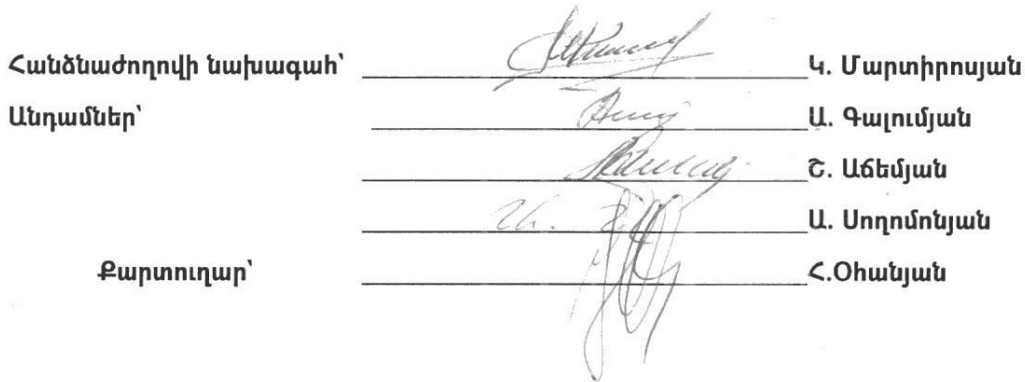 Հանձնաժողովի նախագահ՝ Կ. Մարտիրոսյան
Անդամներ՝ Ա. Գալումյան
Շ. Աճեմյան
Ա. Սողոմոնյան
Քարտուղար՝ Հ.Օհանյան